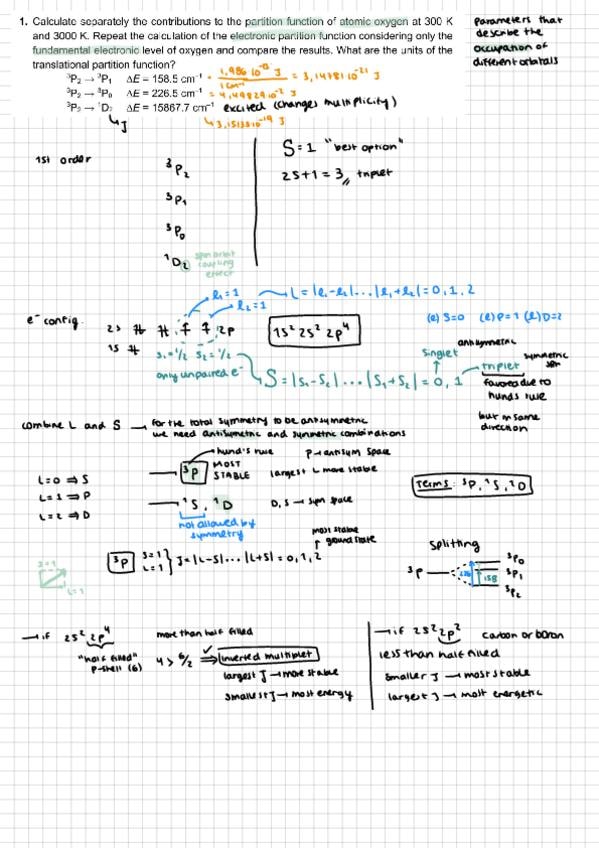 1. Calculate separately the contributions to the partition function of atomic oxygen at 300 K
and 3000 K. Repeat the calculation of the electronic partition function considering only the
fundamental electronic level of oxygen and compare the results. What are the units of the
translational partition function?
Parameters that
describe the
occupation of
different orbitals
³P₂ → ³P₁ ΔE = 158.5 cm⁻¹ = 3,14781·10⁻²¹ J
³P₂ → ³P₀ ΔE = 226.5 cm⁻¹ = 4,49829·10⁻²¹ J
³P₂ → ¹D₂ ΔE = 15867.7 cm⁻¹ excited (changes multiplicity)
↳ J
↳ 3,1513·10⁻¹⁹ J
1st order
³P₂
³P₁
³P₀
¹D₂
spin orbit
coupling
effect
S=1 "best option"
2S+1 = 3 triplet
l₁=1
l₂=1
L=|l₁-l₂|...|l₁+l₂|=0,1,2
(l) S=0 (l) P=1 (l) D=2
e⁻ config.
2s
2p
1s
1s² 2s² 2p⁴
s₁=1/2 s₂=1/2
only unpaired e⁻
S=|s₁-s₂|...|s₁+s₂|=0,1
antisymmetric
singlet
triplet
symmetric
spin
favored due to
hunds rule
but in same
direction
combine L and S → for the total symmetry to be antisymmetric
we need antisymetric and symmetric combinations
L=0 ⇒ S
L=1 ⇒ P
L=2 ⇒ D
hund's rule
³P MOST
STABLE
P → antisym space
largest L more stable
¹S, ¹D
D, S → sym space
not allowed by
symmetry
Terms: ³P, ¹S, ¹D
³P
S=1
L=1
J=|L-S|...|L+S|=0,1,2
most stable
ground state
S=1
L=1
splitting
³P
³P₀
³P₁
³P₂
158
→ if 2s² 2p⁴
"half filled"
P-shell (6)
more than half filled
4 > 6/2 ⇒ inverted multiplet
largest J → more stable
smallest J → most energy
→ if 2s² 2p² carbon or boron
less than half filled
smaller J → most stable
largest J → most energetic